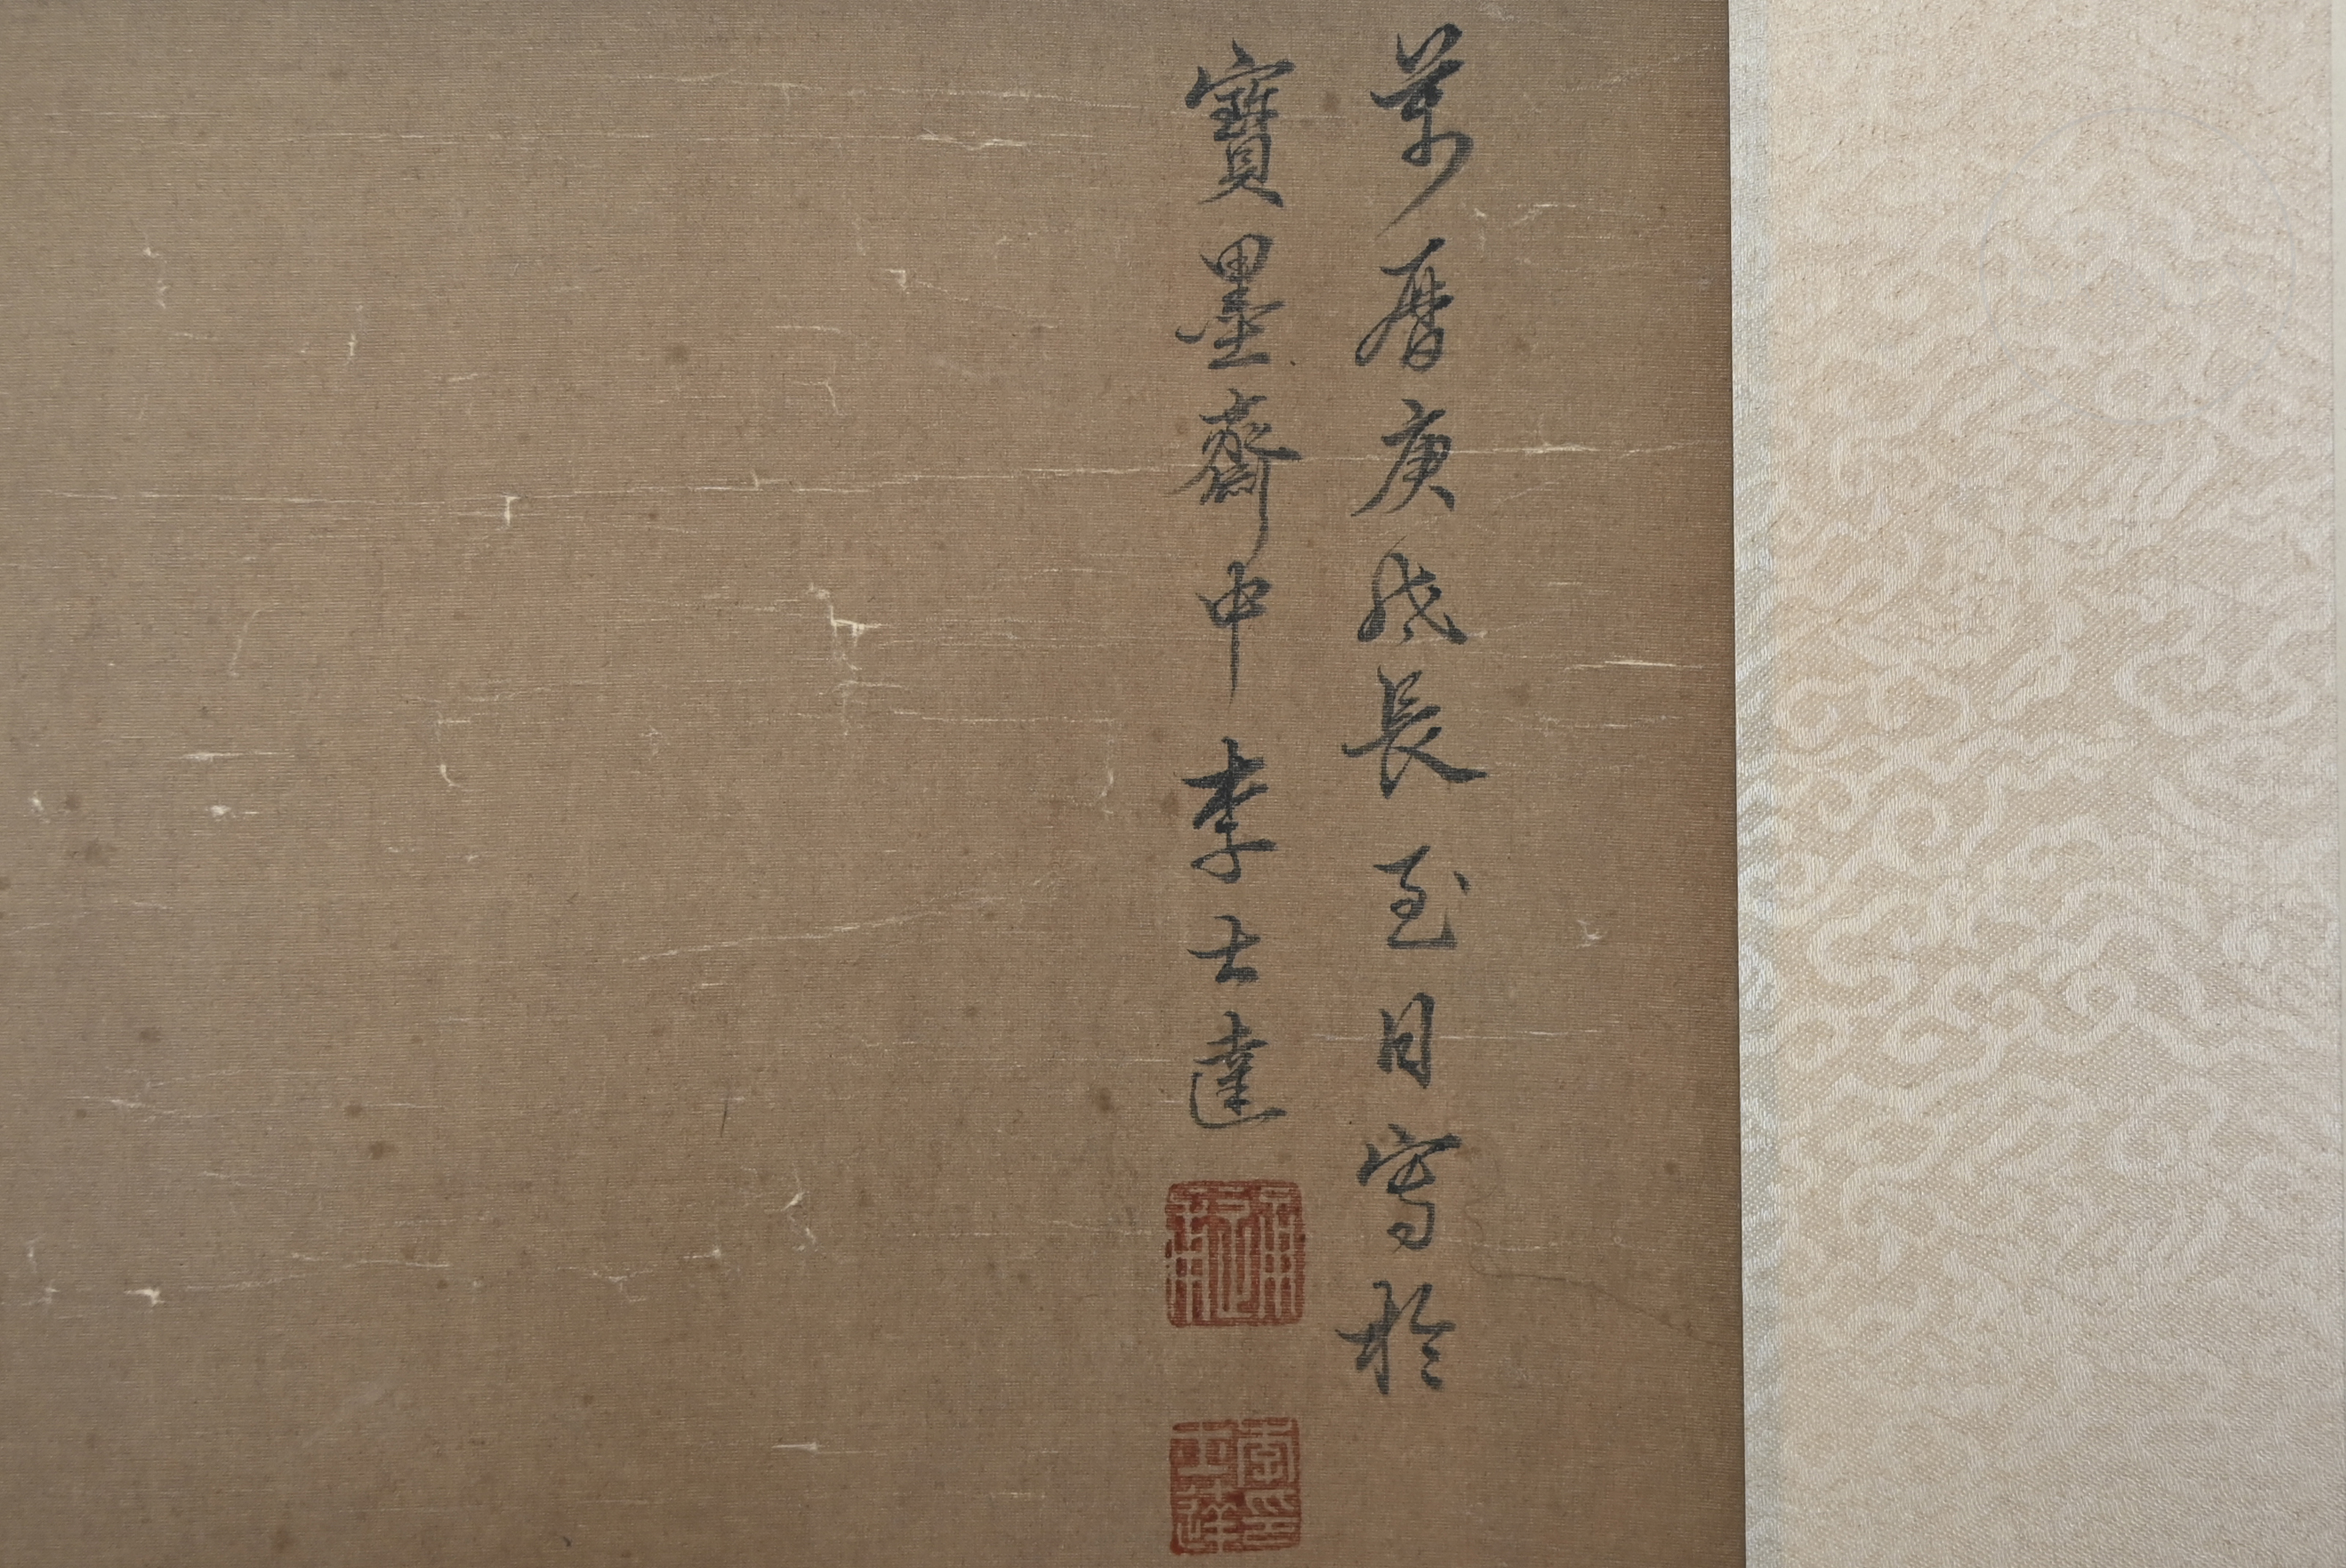 萬曆庚戌長至日寫於
寶墨齋中李士達
李印士達